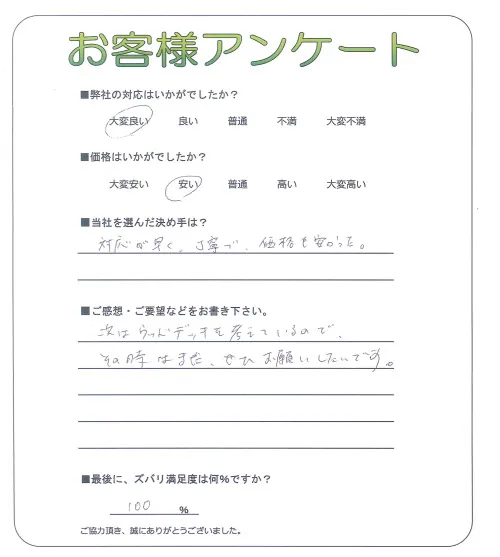 お客様アンケート
■弊社の対応はいかがでしたか？
大変良い 良い 普通 不満 大変不満
■価格はいかがでしたか？
大変安い 安い 普通 高い 大変高い
■当社を選んだ決め手は？
対応が早く、丁寧で、価格も安かった。
■ご感想・ご要望などをお書き下さい。
次はウッドデッキを考えているので、
その時はまた、ぜひお願いしたいです。
■最後に、ズバリ満足度は何%ですか？
100 %
ご協力頂き、誠にありがとうございました。